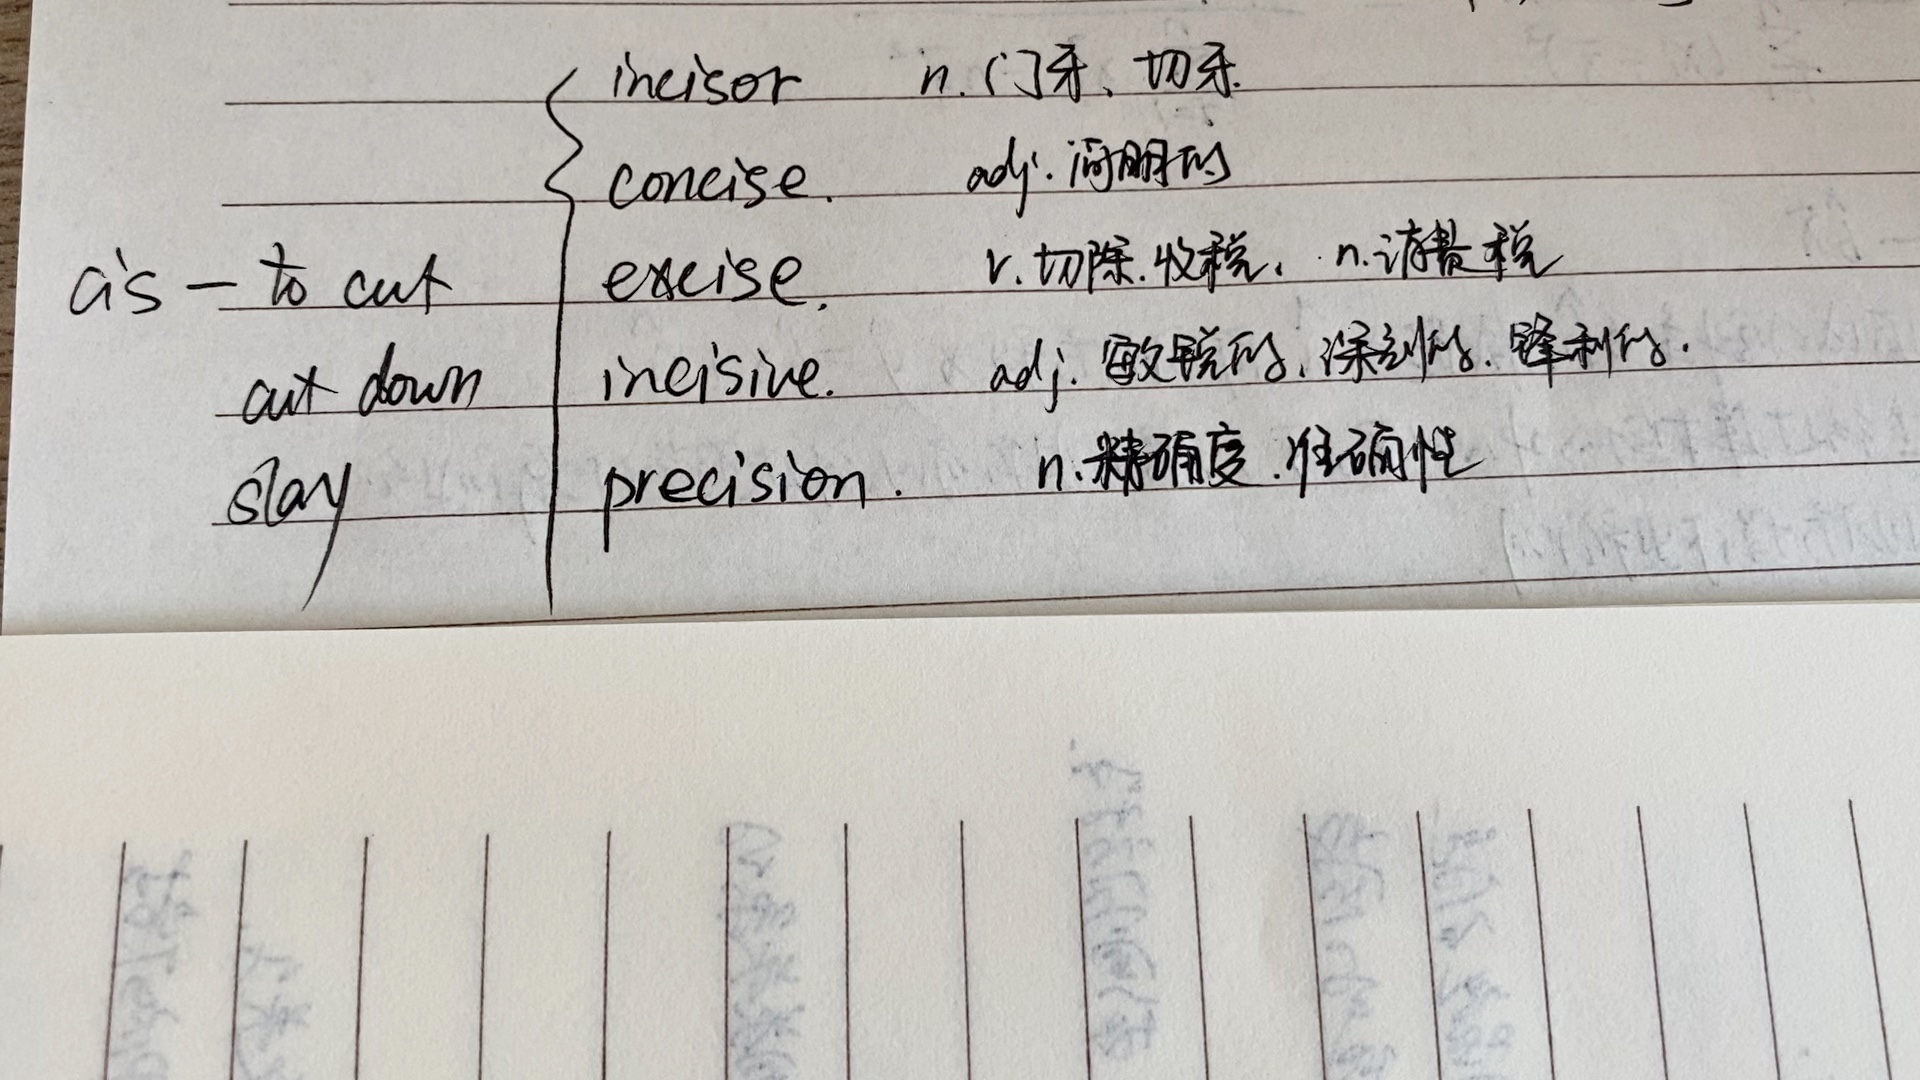 incisor n. 门牙、切牙.
concise. adj. 简明的
cis — to cut excise. v. 切除.收税. n.消费税
cut down incisive. adj. 敏锐的、深刻的、锋利的.
slay precision. n.精确度.准确性